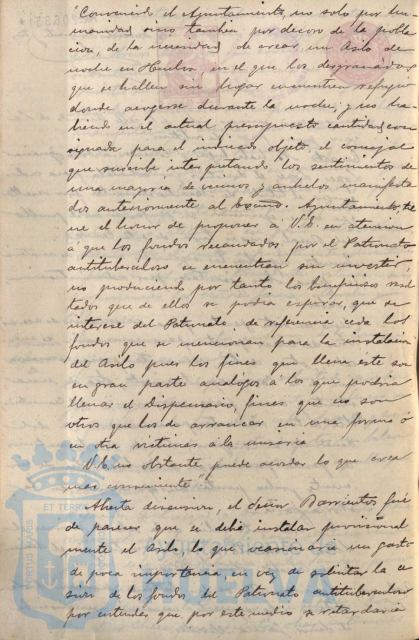 "Convencido el Ayuntamiento, no solo por hu
manidad sino tambien por decoro de la pobla
cion, de la necesidad de crear un Asilo de
noche en Huelva en el que los desgraciados
que se hallen sin hogar encuentren refugio
donde acogerse durante la noche; y no ha
biendo en el actual presupuesto cantidad con
signada para el indicado objeto, el concejal
que suscribe interpretando los sentimientos de
una mayoria de vecinos y anhelos manifesta
dos anteriormente al Excmo. Ayuntamiento, tie
ne el honor de proponer á V.E. en atencion
á que los fondos recaudados por el Patronato
antituberculoso se encuentran sin invertir
no produciendo por tanto los beneficiosos resul
tados que de ellos se podia esperar, que se
interese del Patronato de referencia ceda los
fondos que se mencionan para la instalacion
del Asilo pues los fines que llena este son
en gran parte analogos á los que podria
llenar el dispensario, fines que no son
otros que los de arrancar en una forma ó
en otra victimas á la miseria
V.E. no obstante puede acordar lo que crea
mas conveniente
Abierta discusion, el Señor Barrientos fué
de parecer que se debia instalar provisional
mente el Asilo, lo que ocasionaria un gasto
de poca importancia, en vez de solicitar la ce
sion de los fondos del Patronato antituberculoso
por entender que por este medio se retardaria
ET TERRAE
PORTUS MARIS
HUELVA